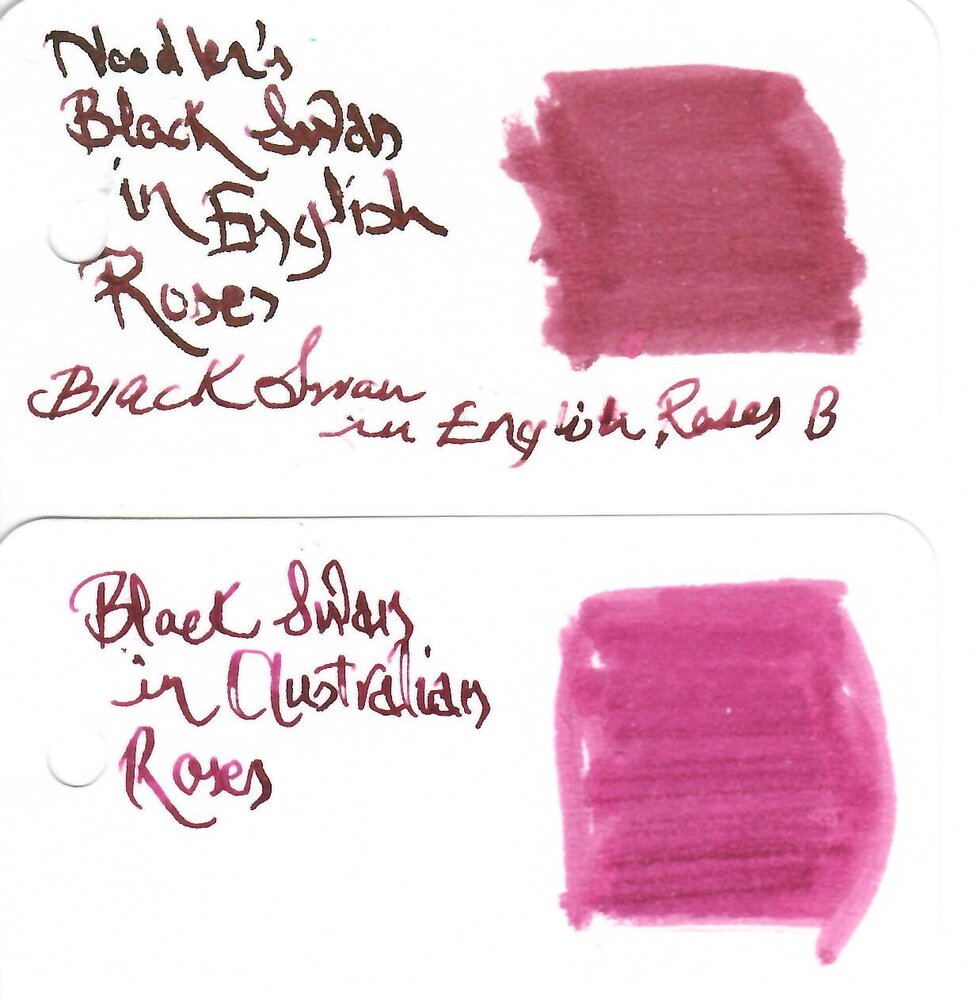 Noodler's
Black Swan
in English
Roses
Black Swan
in English Roses B
Black Swan
in Australian
Roses